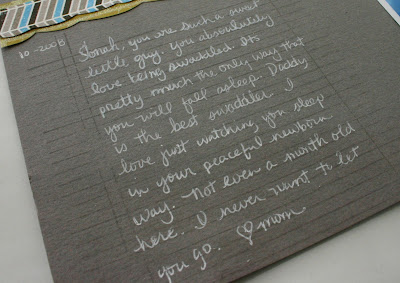 10-2008
Jonah, you are such a sweet
little guy. You absolutely
love being swaddled. Its
pretty much the only way that
you will fall asleep. Daddy
is the best swaddler. I
love just watching you sleep
in your peaceful newborn
way. Not even a month old
here. I never want to let
you go. ♡ mom